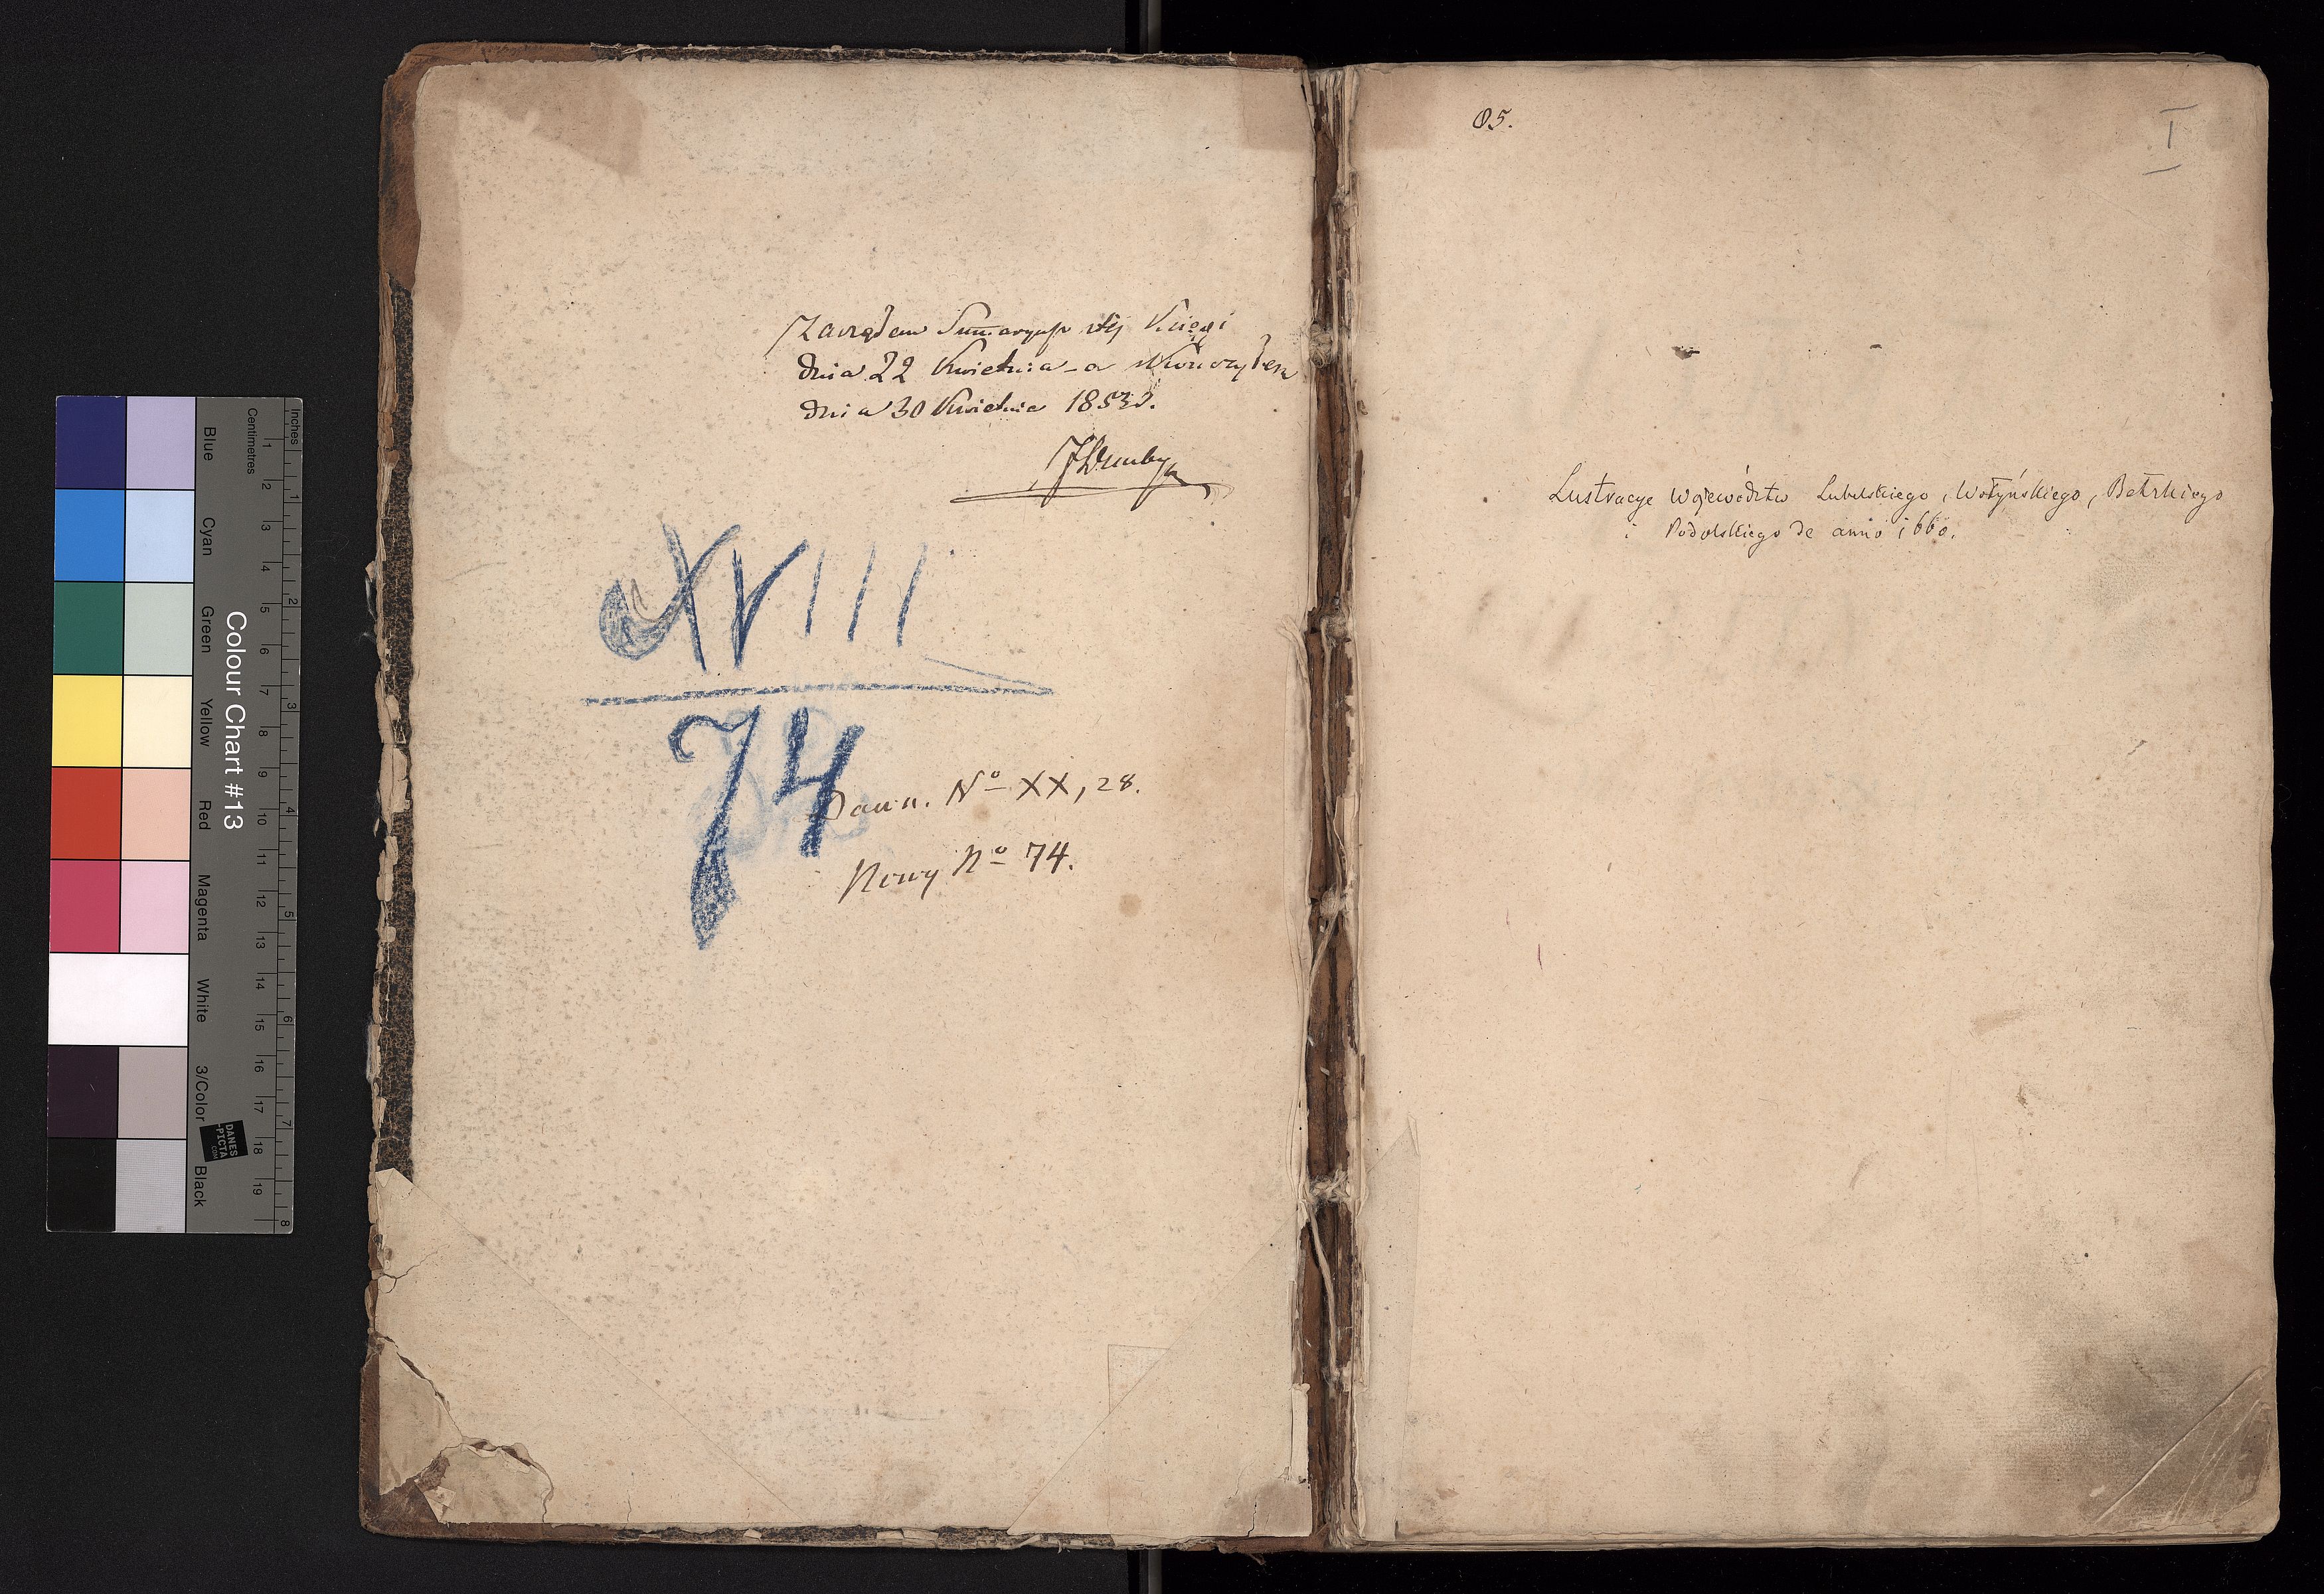 Zacząłem Summaryusz téj Księgi
dnia 22 Kwietnia - a skończyłem
dnia 30 Kwietnia 1853 r.
XVIII
74
Dawn. Nº XX, 28.
Nowy Nº 74.
85.
I
Lustracye Województw Lubelskiego, Wołyńskiego, Bełzkiego
i Podolskiego de anno 1660.
Colour Chart #13
Blue Cyan Green Yellow Red Magenta White 3/Color Black
Centimetres 1 2 3 4 5 6 7 8 9 10 11 12 13 14 15 16 17 18 19
Inches 1 2 3 4 5 6 7 8
DANES
-PICTA
.COM